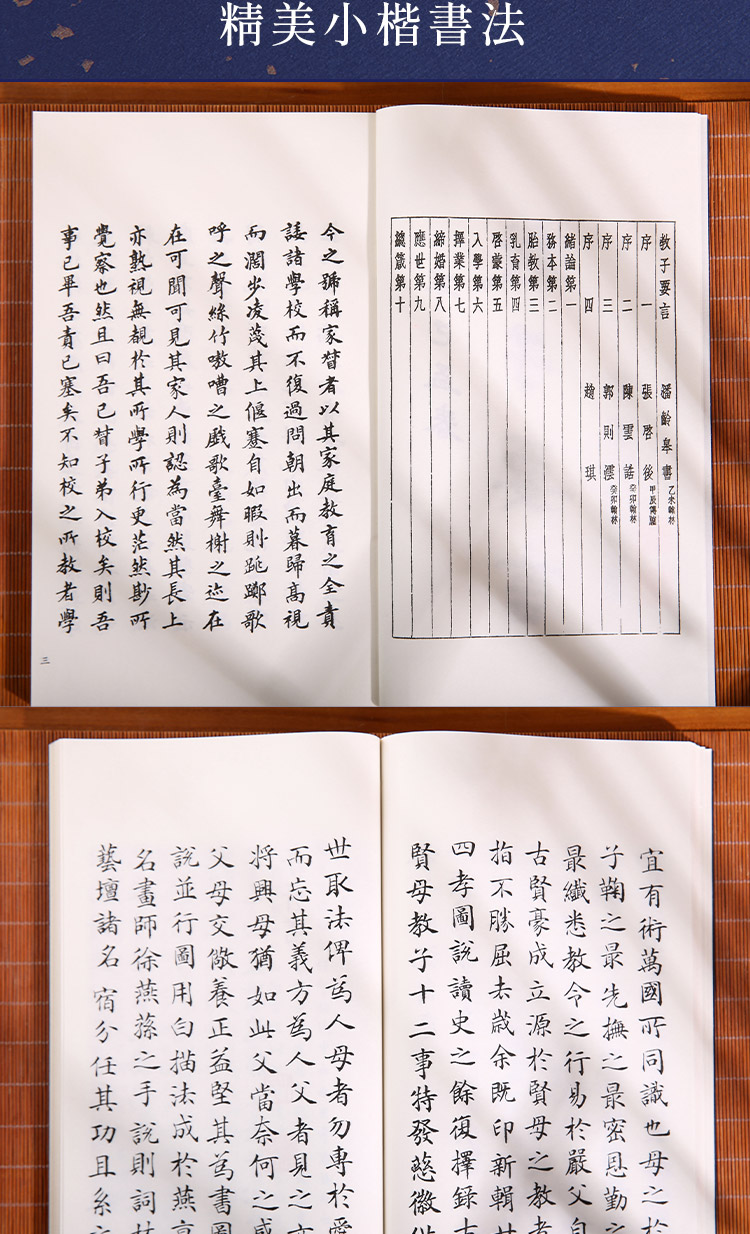 精美小楷書法
教子要言 潘齡皋書 乙未翰林
序一 張啓後 甲辰傳臚
序二 陳雲誥 癸卯翰林
序三 郭則澐 癸卯翰林
序四 趙琪
緒論第一
務本第二
胎教第三
乳育第四
啓蒙第五
入學第六
擇業第七
締婚第八
應世第九
總箴第十
今之號稱家督者以其家庭教育之全責
諉諸學校而不復過問朝出而暮歸高視
而濶步凌蔑其上偃蹇自如暇則跳躑歌
呼之聲絲竹嗷嘈之戲歌臺舞榭之迹在
在可聞可見其家人則認為當然其長上
亦熟視無覩於其所學所行更茫然尠所
覺察也然且曰吾已督子弟入校矣則吾
事已畢吾責已塞矣不知校之所教者學
三
宜有術萬國所同識也母之於
子鞠之最先撫之最密恩勤之
最纖悉教令之行易於嚴父自
古賢豪成立源於賢母之教者
指不勝屈去歲余既印新輯廿
四孝圖說讀史之餘復擇錄古
賢母教子十二事特發慈徽
世取法俾為人母者勿專於愛
而忘其義方為人父者見之亦
將興母猶如此父當奈何之感
父母交儆養正益堅其為書圖
說並行圖用白描法成於燕京
名畫師徐燕蓀之手說則詞林
藝壇諸名宿分任其功且系之